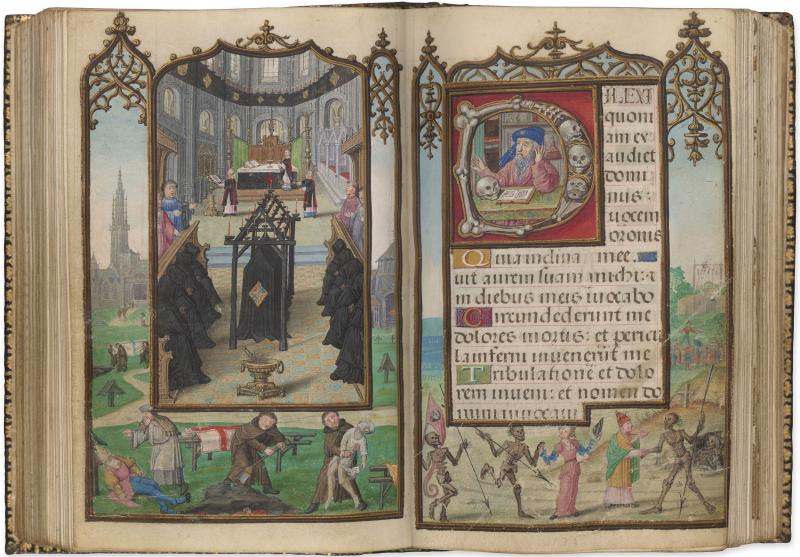 DILEXI
quoni
am ex
audiet
domi
nus :
uocem
orōnis
Quia inclina mee.
uit aurem suam michi : et
in diebus meis īuocabo
Circumdederunt me
dolores mortis : et pericu
la inferni inuenerūt me
Tribulationē et dolo
rem inueni : et nomen do
mini inuocaui